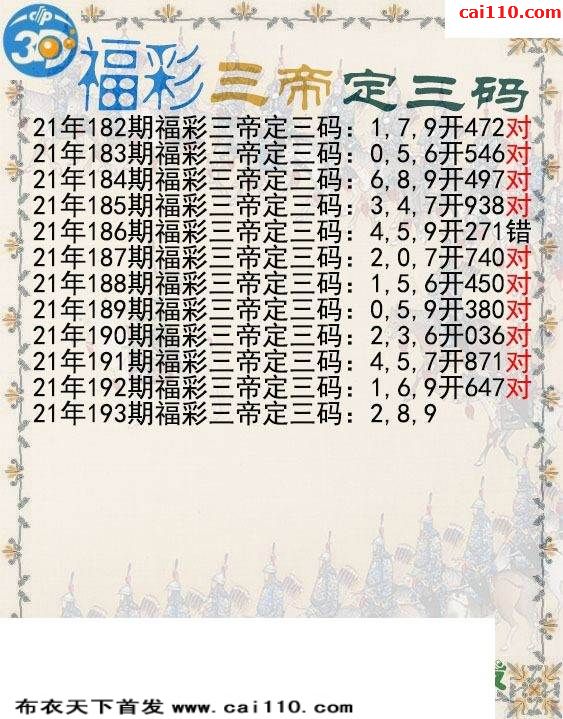 cai110.com
3D
福彩三帝定三码
21年182期福彩三帝定三码：1,7,9开472对
21年183期福彩三帝定三码：0,5,6开546对
21年184期福彩三帝定三码：6,8,9开497对
21年185期福彩三帝定三码：3,4,7开938对
21年186期福彩三帝定三码：4,5,9开271错
21年187期福彩三帝定三码：2,0,7开740对
21年188期福彩三帝定三码：1,5,6开450对
21年189期福彩三帝定三码：0,5,9开380对
21年190期福彩三帝定三码：2,3,6开036对
21年191期福彩三帝定三码：4,5,7开871对
21年192期福彩三帝定三码：1,6,9开647对
21年193期福彩三帝定三码：2,8,9
布衣天下首发 www.cai110.com